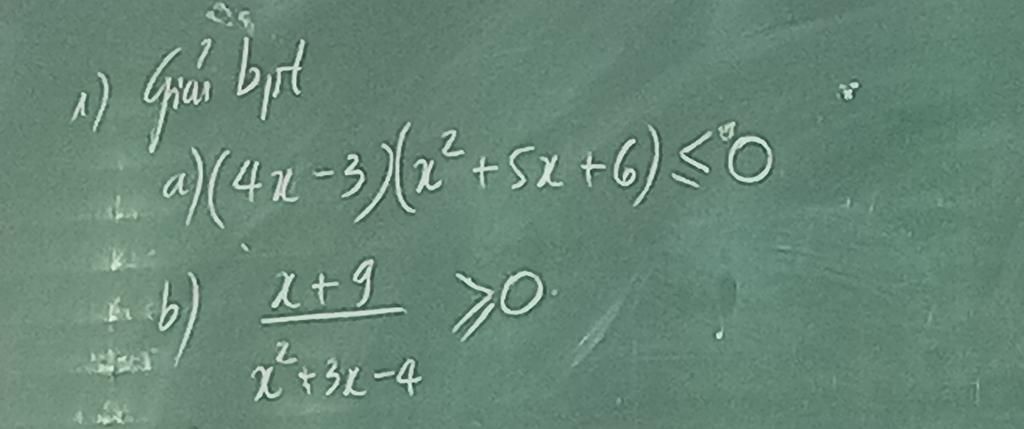 1) Giải bpt
a) (4x - 3)(x² + 5x + 6) ≤ 0
b) x + 9 / x² + 3x - 4 ⩾ 0